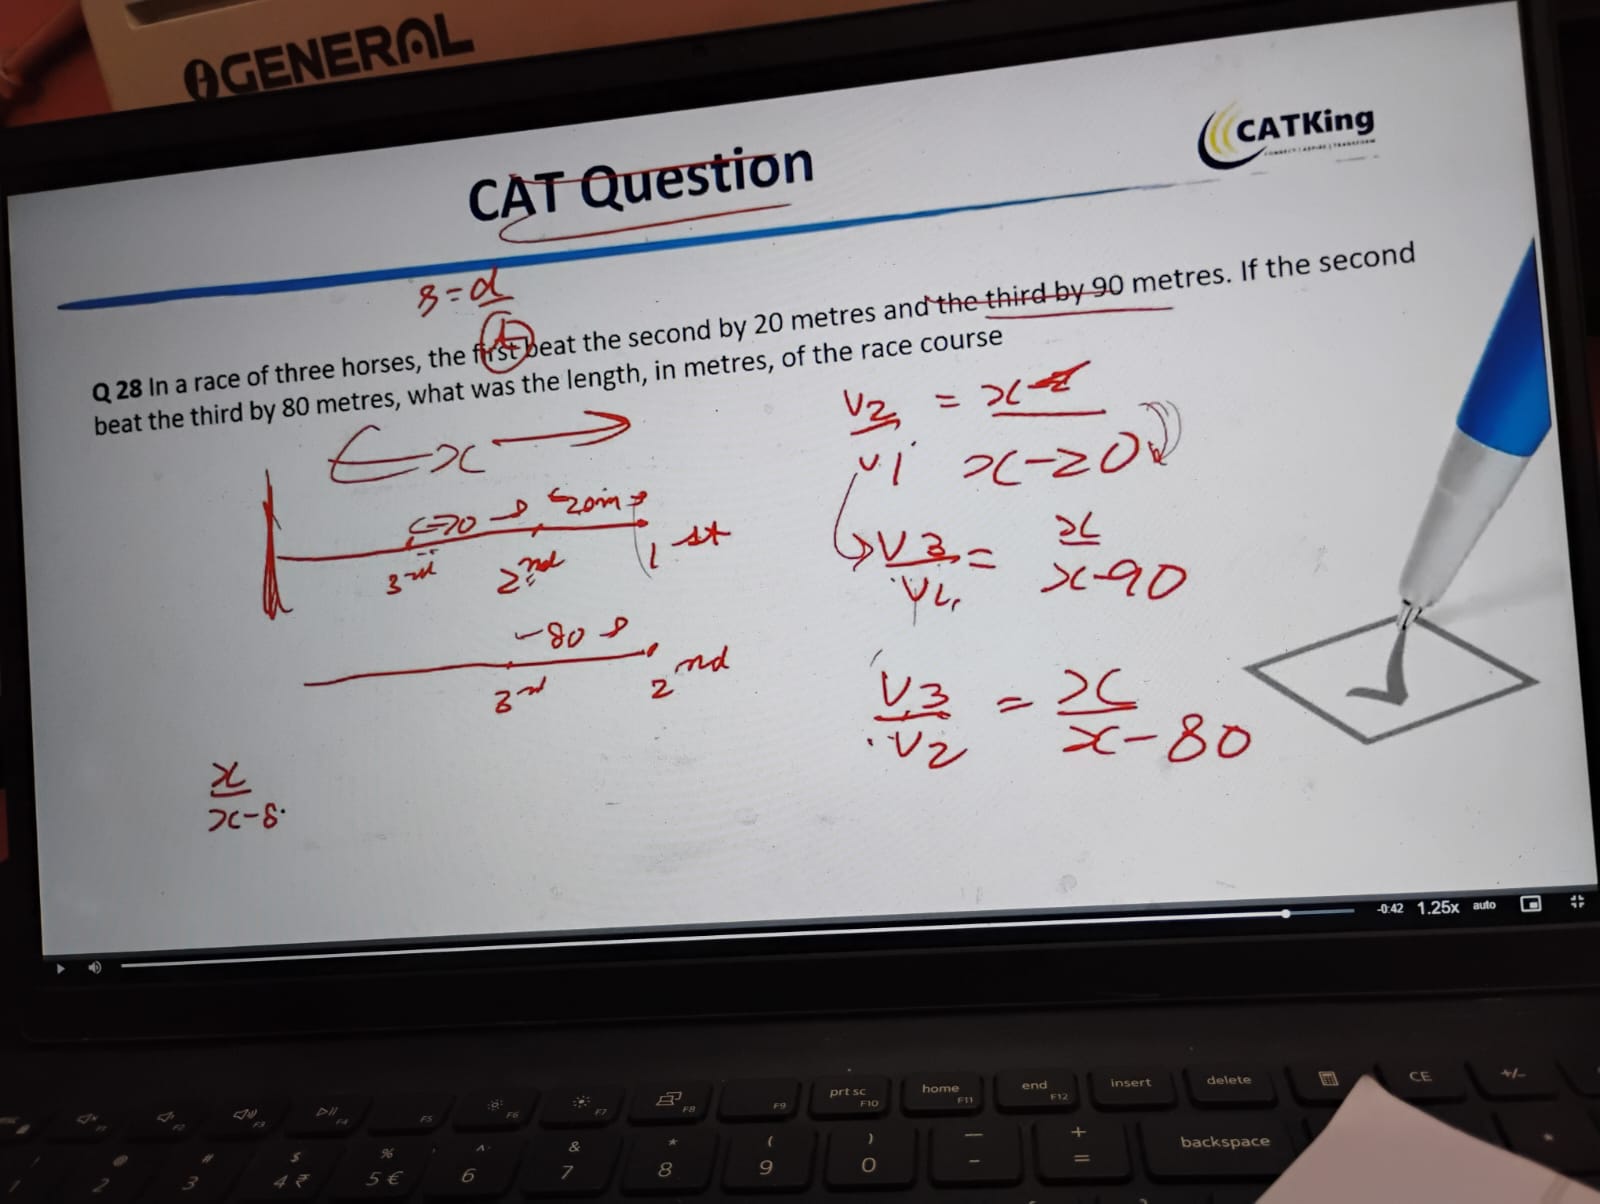 GENERAL
CATKing
CAT Question
s = d
t
Q 28 In a race of three horses, the first beat the second by 20 metres and the third by 90 metres. If the second
beat the third by 80 metres, what was the length, in metres, of the race course
x
70
20m
3rd
2nd
1st
80
3rd
2nd
x
x-8
V2 = x
V1 x-20
V3 = x
V1 x-90
V3 = x
V2 x-80
-0:42 1.25x auto
prt sc
home
end
insert
delete
CE
+/-
F5
F6
F7
F8
F9
F10
F11
F12
# $ % ^ & * ( ) — +
2 3 4 ₹ 5 € 6 7 8 9 0 - = backspace